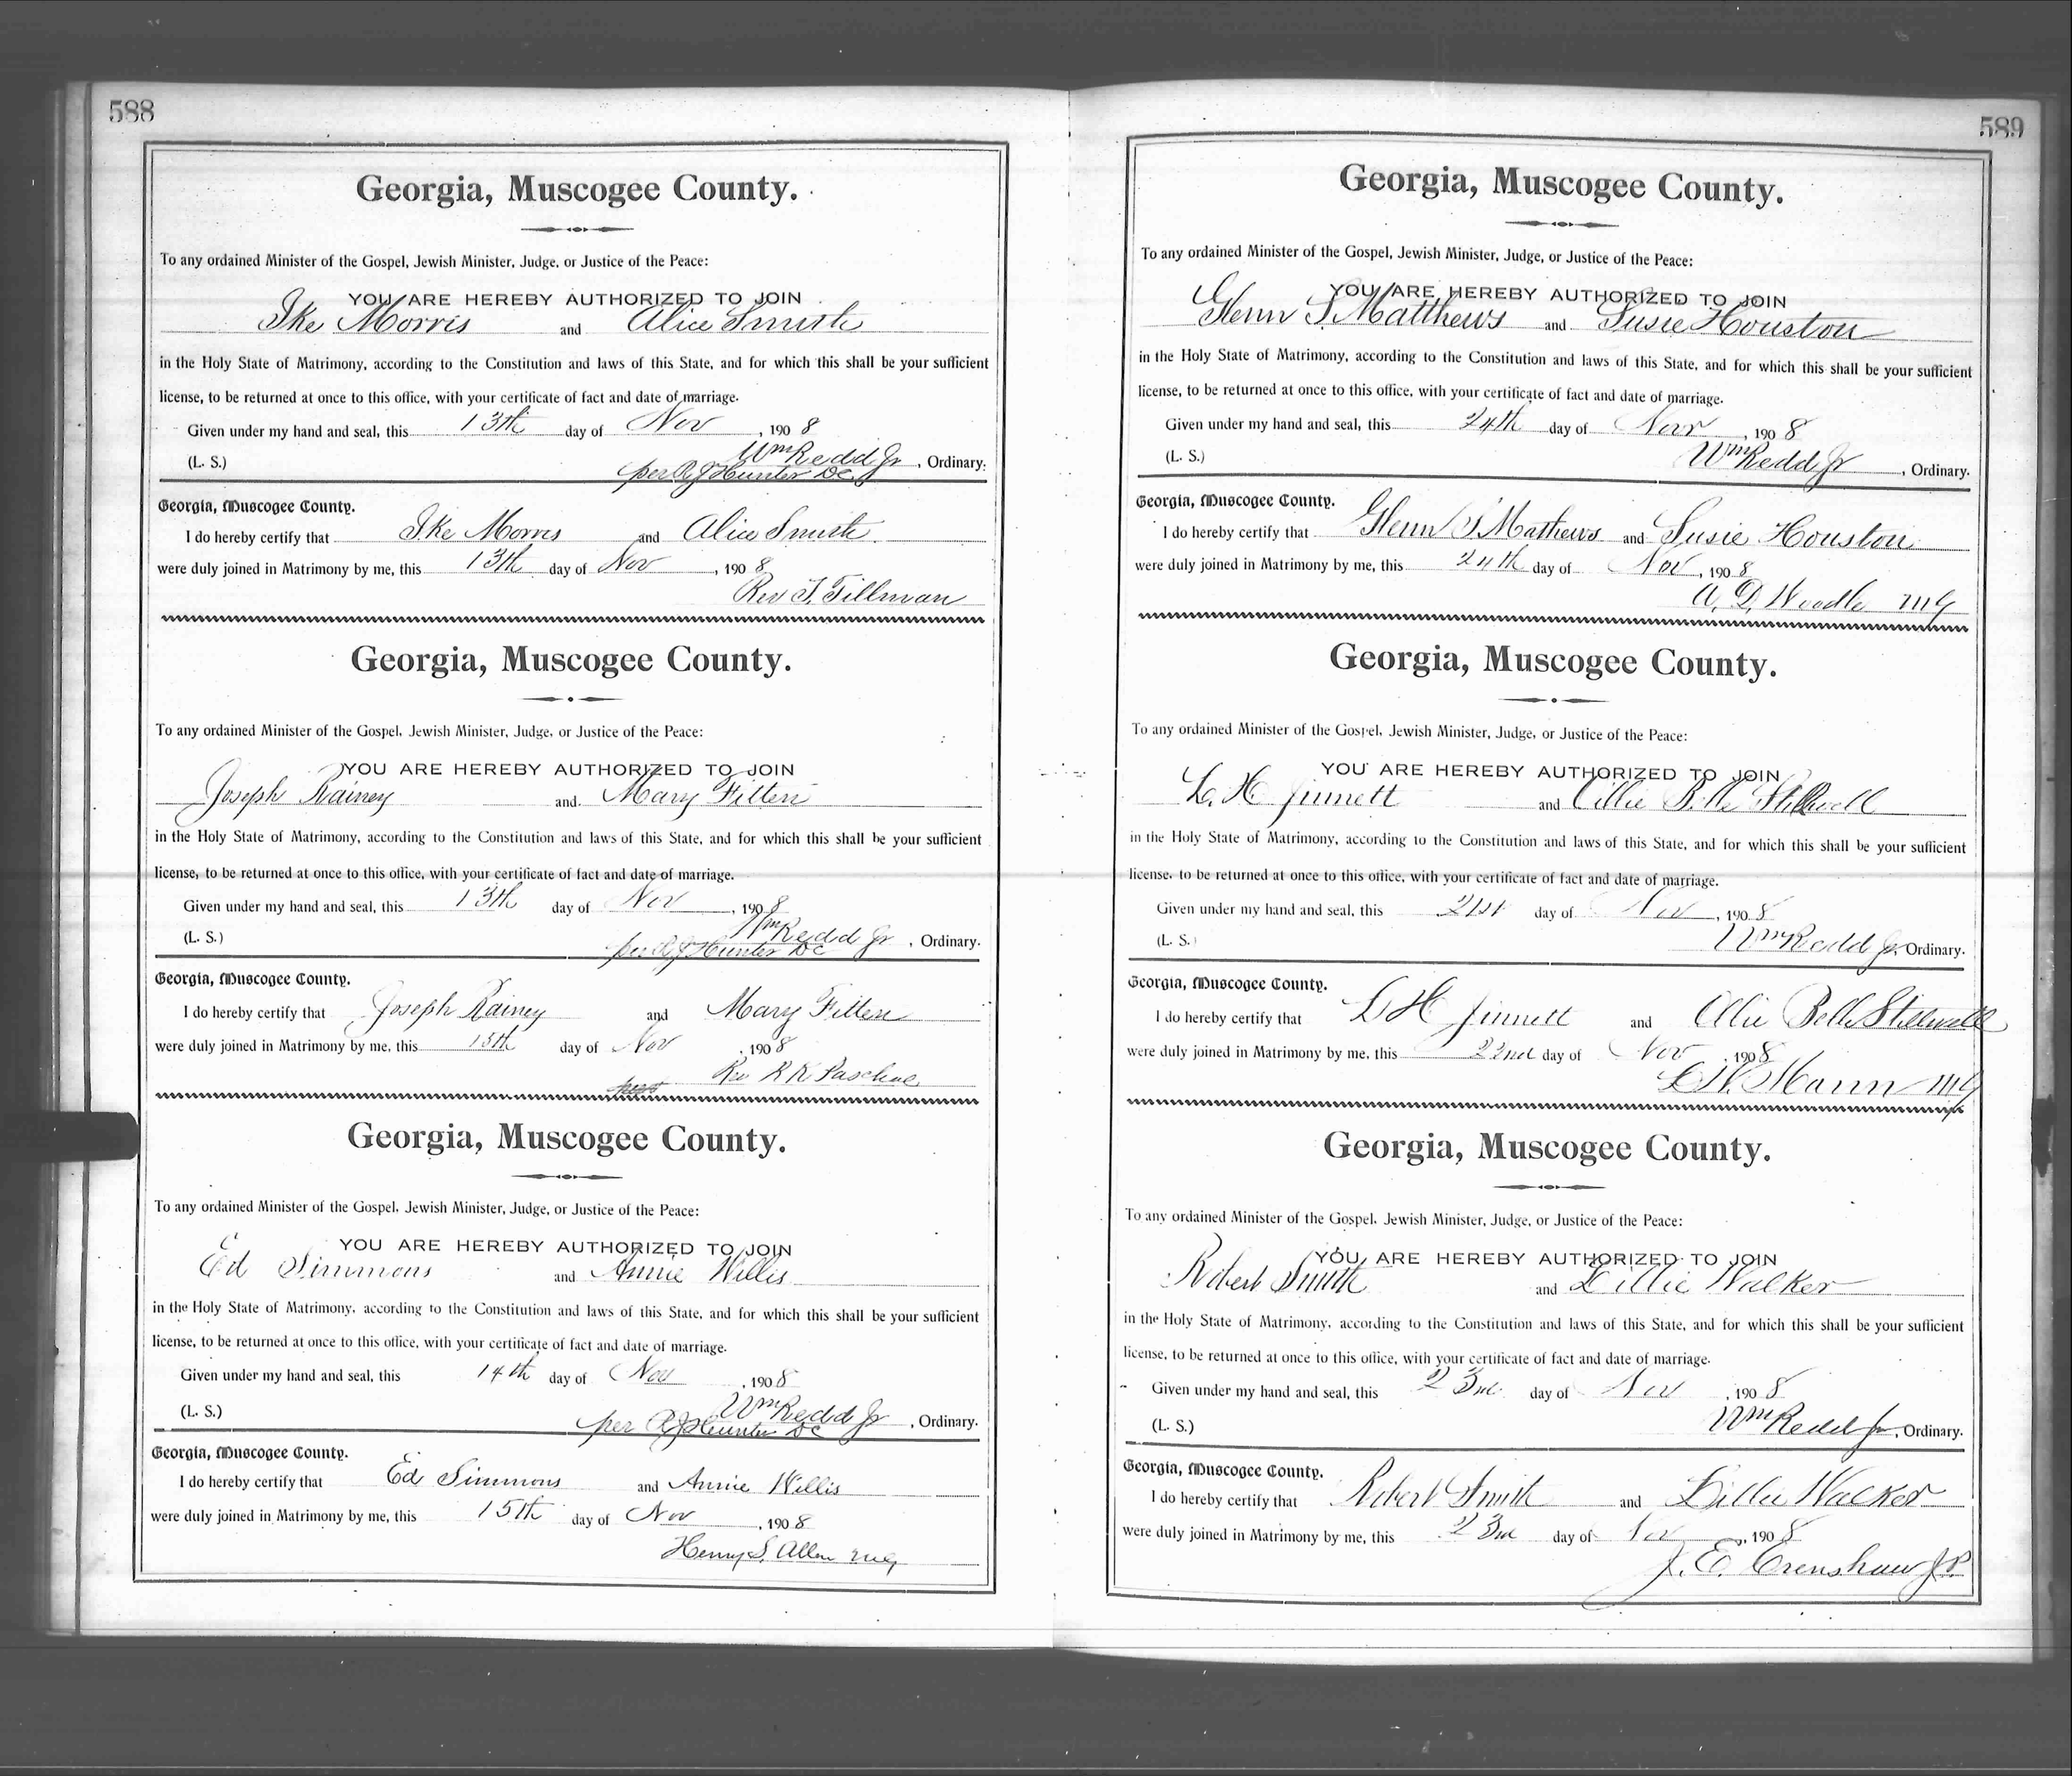 588
Georgia, Muscogee County.
To any ordained Minister of the Gospel, Jewish Minister, Judge, or Justice of the Peace:
YOU ARE HEREBY AUTHORIZED TO JOIN
Ike Morris and Alice Smith
in the Holy State of Matrimony, according to the Constitution and laws of this State, and for which this shall be your sufficient
license, to be returned at once to this office, with your certificate of fact and date of marriage.
Given under my hand and seal, this 13th day of Nov, 1908
(L. S.) Wm Redd Jr, Ordinary.
per R J Hunter DC
Georgia, Muscogee County.
I do hereby certify that Ike Morris and Alice Smith
were duly joined in Matrimony by me, this 13th day of Nov, 1908
Rev T. Tillman
Georgia, Muscogee County.
To any ordained Minister of the Gospel, Jewish Minister, Judge, or Justice of the Peace:
YOU ARE HEREBY AUTHORIZED TO JOIN
Joseph Rainey and Mary Fitten
in the Holy State of Matrimony, according to the Constitution and laws of this State, and for which this shall be your sufficient
license, to be returned at once to this office, with your certificate of fact and date of marriage.
Given under my hand and seal, this 13th day of Nov, 1908
(L. S.) Wm Redd Jr, Ordinary.
per R J Hunter DC
Georgia, Muscogee County.
I do hereby certify that Joseph Rainey and Mary Fitten
were duly joined in Matrimony by me, this 15th day of Nov, 1908
Rev R R Paschal
Georgia, Muscogee County.
To any ordained Minister of the Gospel, Jewish Minister, Judge, or Justice of the Peace:
YOU ARE HEREBY AUTHORIZED TO JOIN
Ed Simmons and Annie Willis
in the Holy State of Matrimony, according to the Constitution and laws of this State, and for which this shall be your sufficient
license, to be returned at once to this office, with your certificate of fact and date of marriage.
Given under my hand and seal, this 14th day of Nov, 1908
(L. S.) Wm Redd Jr, Ordinary.
per R J Hunter DC
Georgia, Muscogee County.
I do hereby certify that Ed Simmons and Annie Willis
were duly joined in Matrimony by me, this 15th day of Nov, 1908
Henry S. Allen MG
589
Georgia, Muscogee County.
To any ordained Minister of the Gospel, Jewish Minister, Judge, or Justice of the Peace:
YOU ARE HEREBY AUTHORIZED TO JOIN
Glenn S Matthews and Susie Houston
in the Holy State of Matrimony, according to the Constitution and laws of this State, and for which this shall be your sufficient
license, to be returned at once to this office, with your certificate of fact and date of marriage.
Given under my hand and seal, this 24th day of Nov, 1908
(L. S.) Wm Redd Jr, Ordinary.
Georgia, Muscogee County.
I do hereby certify that Glenn S Mathews and Susie Houston
were duly joined in Matrimony by me, this 24th day of Nov, 1908
W. D. Woodle MG
Georgia, Muscogee County.
To any ordained Minister of the Gospel, Jewish Minister, Judge, or Justice of the Peace:
YOU ARE HEREBY AUTHORIZED TO JOIN
L. H. Jinnett and Ollie Belle Stillwell
in the Holy State of Matrimony, according to the Constitution and laws of this State, and for which this shall be your sufficient
license, to be returned at once to this office, with your certificate of fact and date of marriage.
Given under my hand and seal, this 21st day of Nov, 1908
(L. S.) Wm Redd Jr, Ordinary.
Georgia, Muscogee County.
I do hereby certify that L H Jinnett and Ollie Belle Stillwell
were duly joined in Matrimony by me, this 22nd day of Nov, 1908
L. W. Mann MG
Georgia, Muscogee County.
To any ordained Minister of the Gospel, Jewish Minister, Judge, or Justice of the Peace:
YOU ARE HEREBY AUTHORIZED TO JOIN
Robert Smith and Lillie Walker
in the Holy State of Matrimony, according to the Constitution and laws of this State, and for which this shall be your sufficient
license, to be returned at once to this office, with your certificate of fact and date of marriage.
Given under my hand and seal, this 23rd day of Nov, 1908
(L. S.) Wm Redd Jr, Ordinary.
Georgia, Muscogee County.
I do hereby certify that Robert Smith and Lillie Walker
were duly joined in Matrimony by me, this 23rd day of Nov, 1908
J. E. Crenshaw JP.